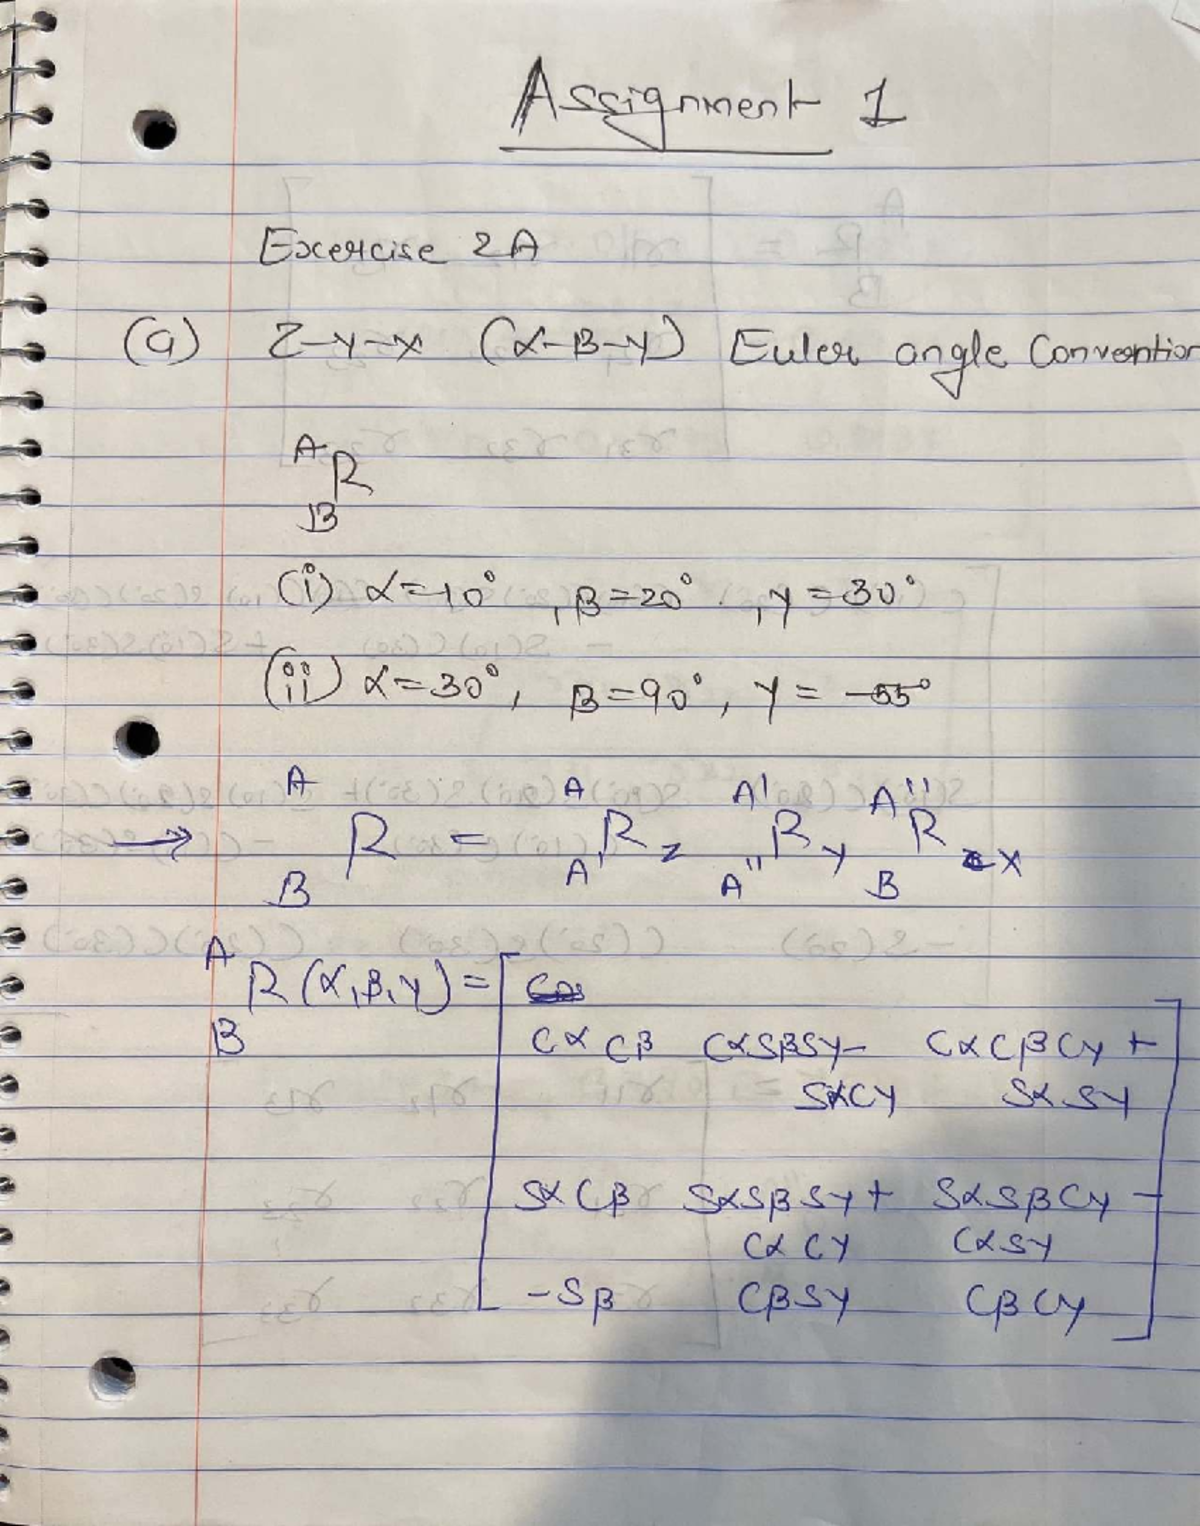 Assignment 1
Excercise 2A
(a) Z-Y-X (α-β-γ) Euler angle Convention
A
R
B
(i) α=10°, β=20°, γ=30°
(ii) α=30°, β=90°, γ= -55°
→ A B R = A A' R z A' A'' R y A'' B R x
A B R (α,β,γ) = [
Cα Cβ CαSβSγ- CαCβCγ +
SαCγ SαSγ
SαCβ SαSβSγ+ SαSβCγ -
CαCγ CαSγ
-Sβ CβSγ CβCγ ]